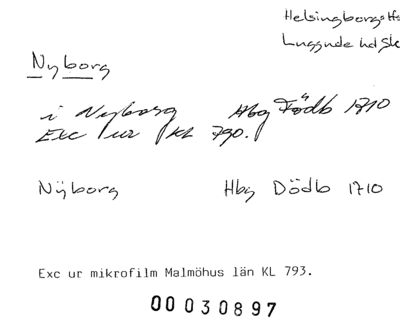 Helsingborgs
Luggude hd Sk
Nyborg
i Nyborg Hbg Födb 1710
Exc ur KL 790.
Nÿborg Hbg Dödb 1710
Exc ur mikrofilm Malmöhus län KL 793.
00 030897